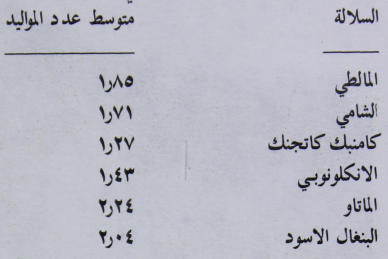 السلالة متوسط عدد المواليد
المالطي ١٫٨٥
الشامي ١٫٧١
كامنبك كاتجنك ١٫٢٧
الانكلونوبي ١٫٤٣
الماتاو ٢٫٢٤
البنغال الاسود ٢٫٠٤